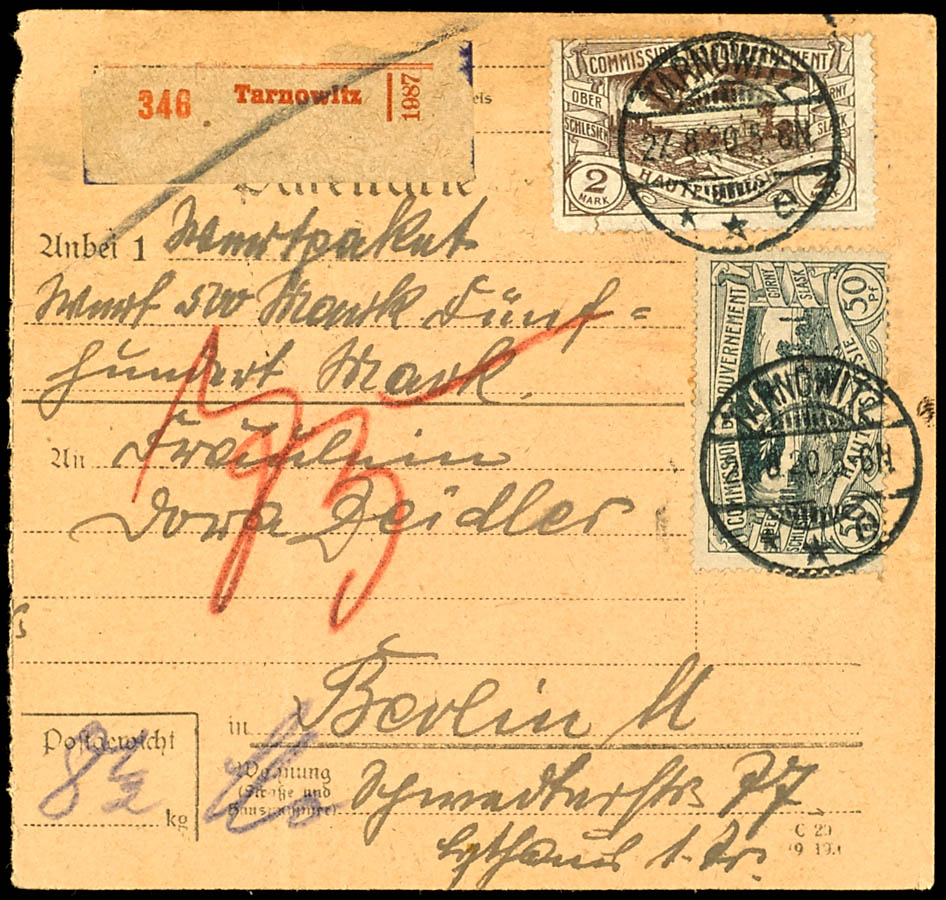 346 Tarnowitz 1987
COMMISSION DE GOUVERNEMENT
OBER
SCHLESIEN
GORNY
SLASK
2
MARK
HAUTE SILESIE
TARNOWITZ
27.8.20.5-6N
Paketkarte
Anbei 1 Wertpaket
Wert 500 Mark Fünf=
hundert Mark
An Fräulein
Dora Zeidler
COMMISSION DE GOUVERNEMENT
GORNY
SLASK
50
Pf
OBER
SCHLESIEN
HAUTE SILESIE
50
TARNOWITZ
8.20.5-6N
in Berlin N
Postgewicht
8 1/2
kg
Wohnung
(Straße und
Hausnummer)
Schwedterstr 77
1. Tr.
C 29